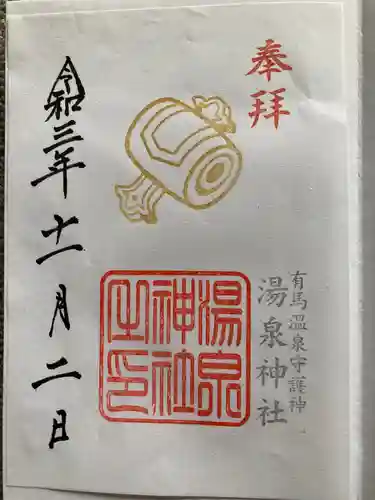 奉拝
有馬温泉守護神
湯泉神社
湯泉
神社
之印
令和三年十一月二日